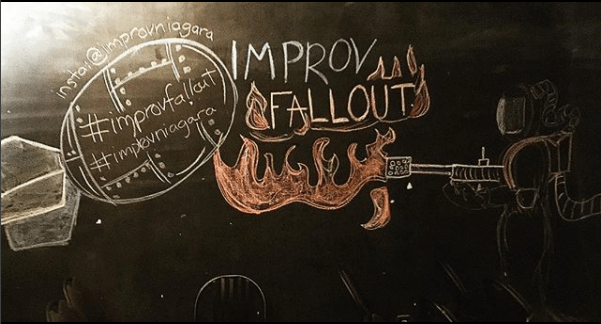 insta:@improvniagara
#improvfallout
#improvniagara
IMPROV
FALLOUT